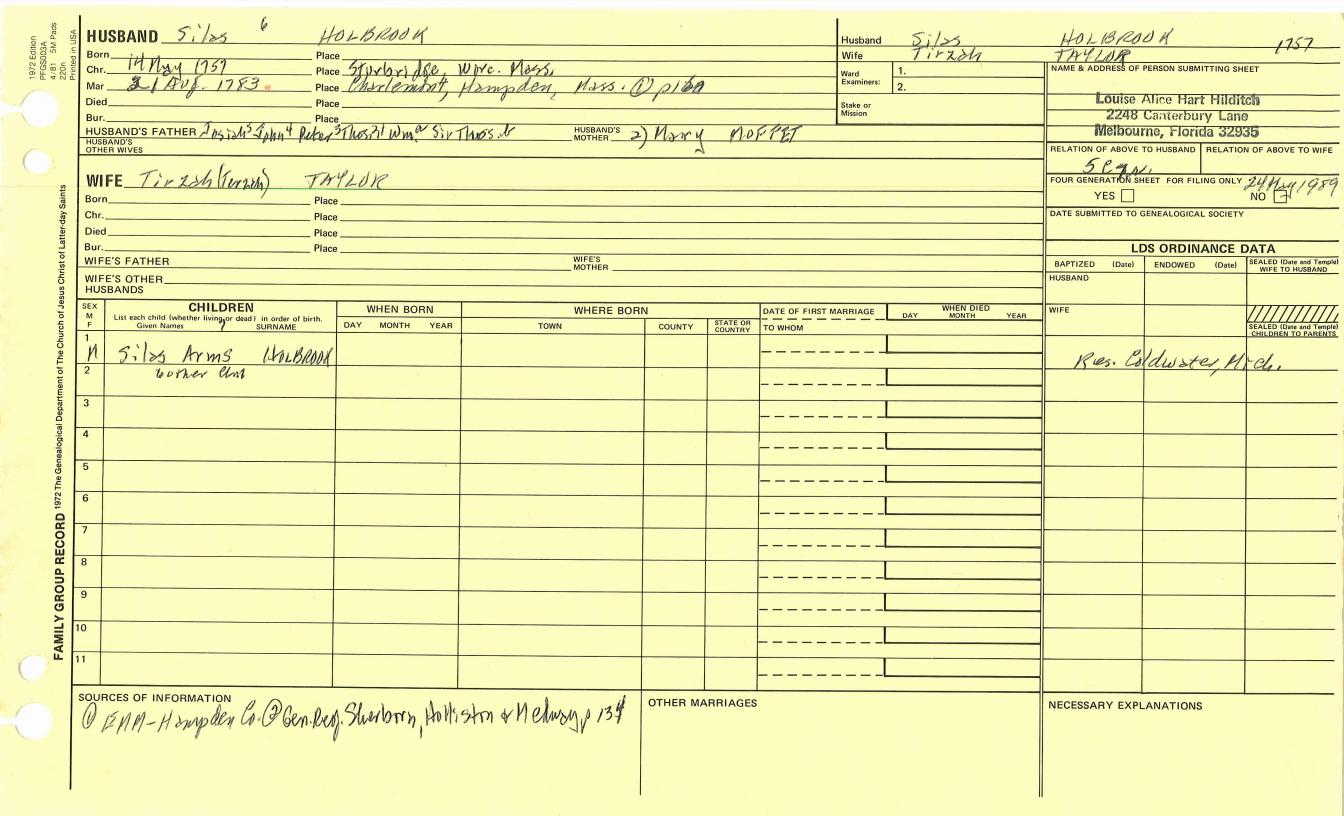 1972 Edition
PFGS003A
4/81 5M Pads
220n
Printed in USA
FAMILY GROUP RECORD 1972 The Genealogical Department of The Church of Jesus Christ of Latter-day Saints
HUSBAND Silas 6 HOLBROOK
Born Place
Chr. 14 May 1757 Place Sturbridge, Worc. Mass.
Mar 21 Aug. 1783 Place Charlemont, Hampden, Mass. ① p160
Died Place
Bur. Place
HUSBAND'S FATHER Josiah5 John4 Peter3 Thos21 Wma Sir Thos. b HUSBAND'S MOTHER 2) Mary MOFFET
HUSBAND'S OTHER WIVES
WIFE Tirzah (Terzah) TAYLOR
Born Place
Chr. Place
Died Place
Bur. Place
WIFE'S FATHER WIFE'S MOTHER
WIFE'S OTHER HUSBANDS
Husband Silas HOLBROOK 1757
Wife Tirzah TAYLOR
Ward Examiners: 1.
2.
Stake or Mission
NAME & ADDRESS OF PERSON SUBMITTING SHEET
Louise Alice Hart Hilditch
2248 Canterbury Lane
Melbourne, Florida 32935
RELATION OF ABOVE TO HUSBAND RELATION OF ABOVE TO WIFE
FOUR GENERATION SHEET FOR FILING ONLY 24 May 1989
YES NO
DATE SUBMITTED TO GENEALOGICAL SOCIETY
LDS ORDINANCE DATA
BAPTIZED (Date) ENDOWED (Date) SEALED (Date and Temple) WIFE TO HUSBAND
HUSBAND
WIFE
SEALED (Date and Temple) CHILDREN TO PARENTS
SEX M F CHILDREN WHEN BORN WHERE BORN DATE OF FIRST MARRIAGE WHEN DIED
List each child (whether living or dead) in order of birth. 7
Given Names SURNAME DAY MONTH YEAR TOWN COUNTY STATE OR COUNTRY TO WHOM DAY MONTH YEAR
1 M Silas Arms HOLBROOK Res. Coldwater, Mich.
2
3
4
5
6
7
8
9
10
11
SOURCES OF INFORMATION
① EMM-Hampden Co. ② Gen. Reg. Sherborn, Holliston & Medway p 134
OTHER MARRIAGES
NECESSARY EXPLANATIONS